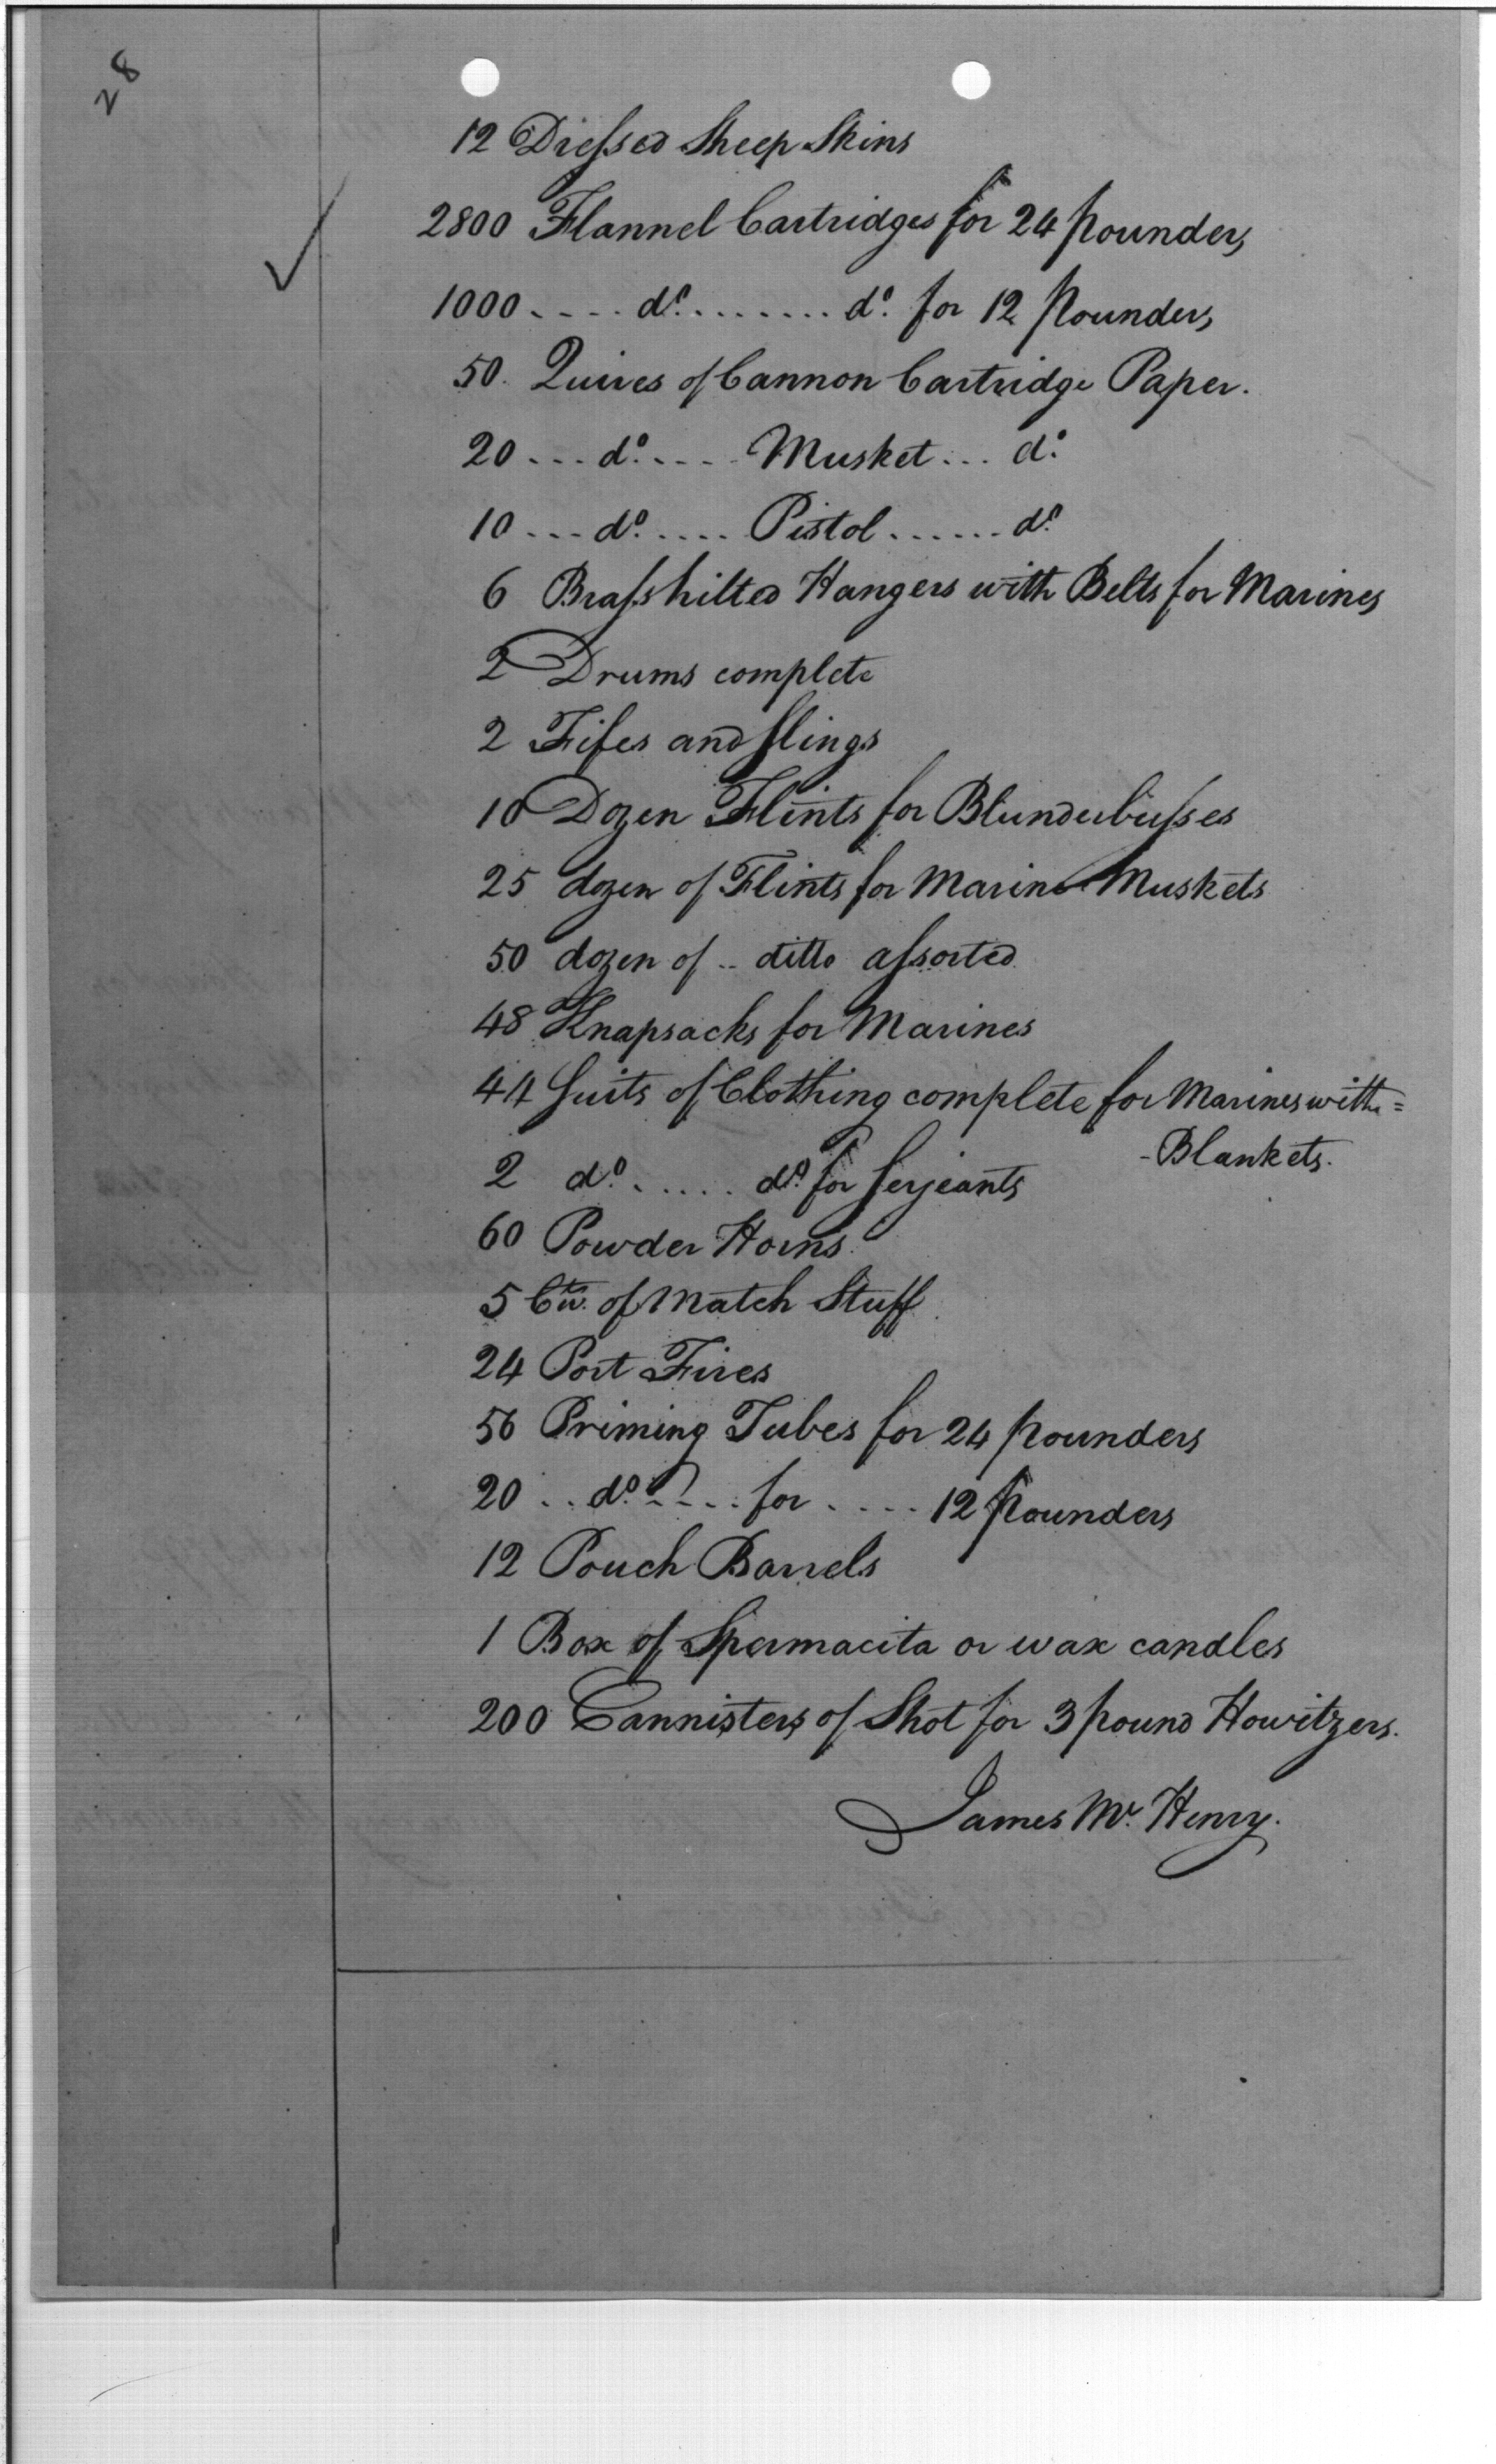 28
12 Dressed Sheep Skins
2800 Flannel Cartridges for 24 pounders
1000 ---- do. ........ do. for 12 pounders
50. Quires of Cannon Cartridge Paper.
20 --- do. --- Musket ... do.
10 --- do. .... Pistol ...... do.
6 Brass hilted Hangers with Belts for Marines
2 Drums complete
2 Fifes and slings
10 Dozen Flints for Blunderbusses
25 dozen of Flints for Marine Muskets
50 dozen of .. ditto assorted
48 Knapsacks for Marines
44 Suits of Clothing complete for Marines with =
-Blankets.
2 do. ..... do. for Serjeants
60 Powder Horns
5 Ctw. of Match Stuff
24 Port Fires
56 Priming Tubes for 24 pounders
20 .. do. .... for .... 12 pounders
12 Pouch Barrels
1 Box of Spermacita or wax candles
200 Cannisters of Shot for 3 pound Howitzers.
James Mc. Henry.